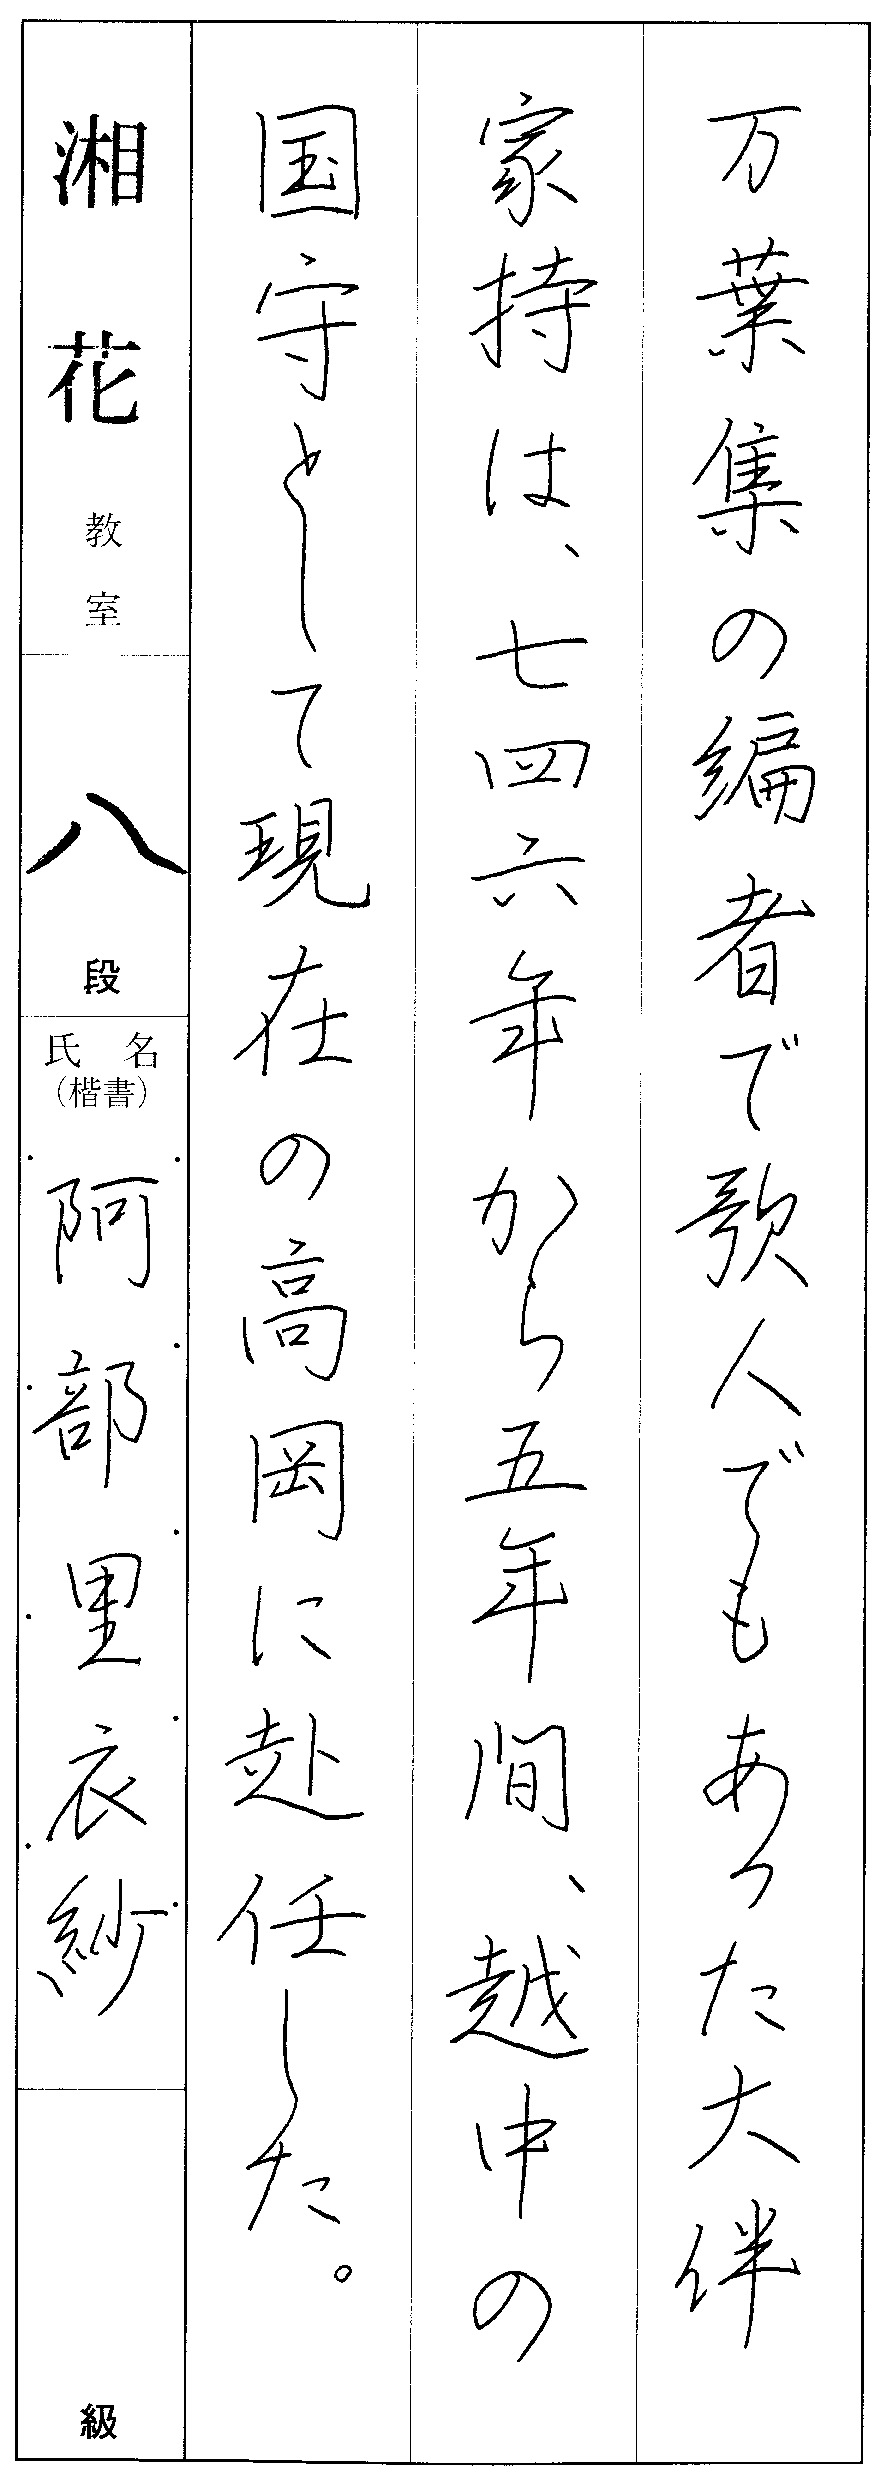 万葉集の編者で歌人でもあった大伴
家持は、七四六年から五年間、越中の
国守として現在の高岡に赴任した。
湘花教室
八段
氏名
（楷書）
阿部里衣紗
級